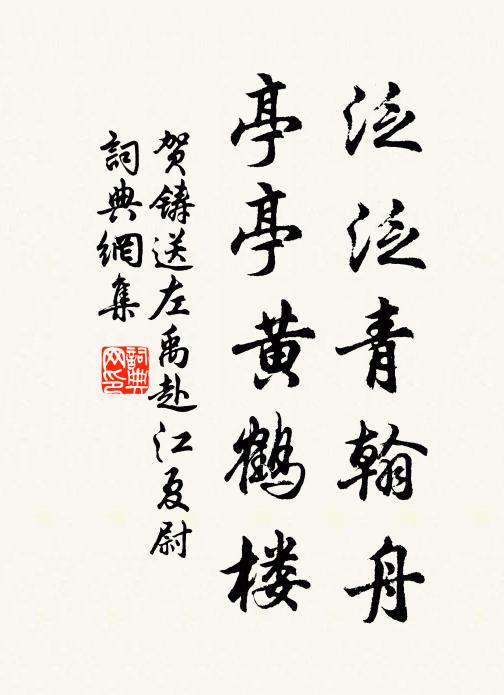 泛泛青翰舟
亭亭黄鹤楼
贺铸送左禹赴江夏尉
詞典網集
詞典网印